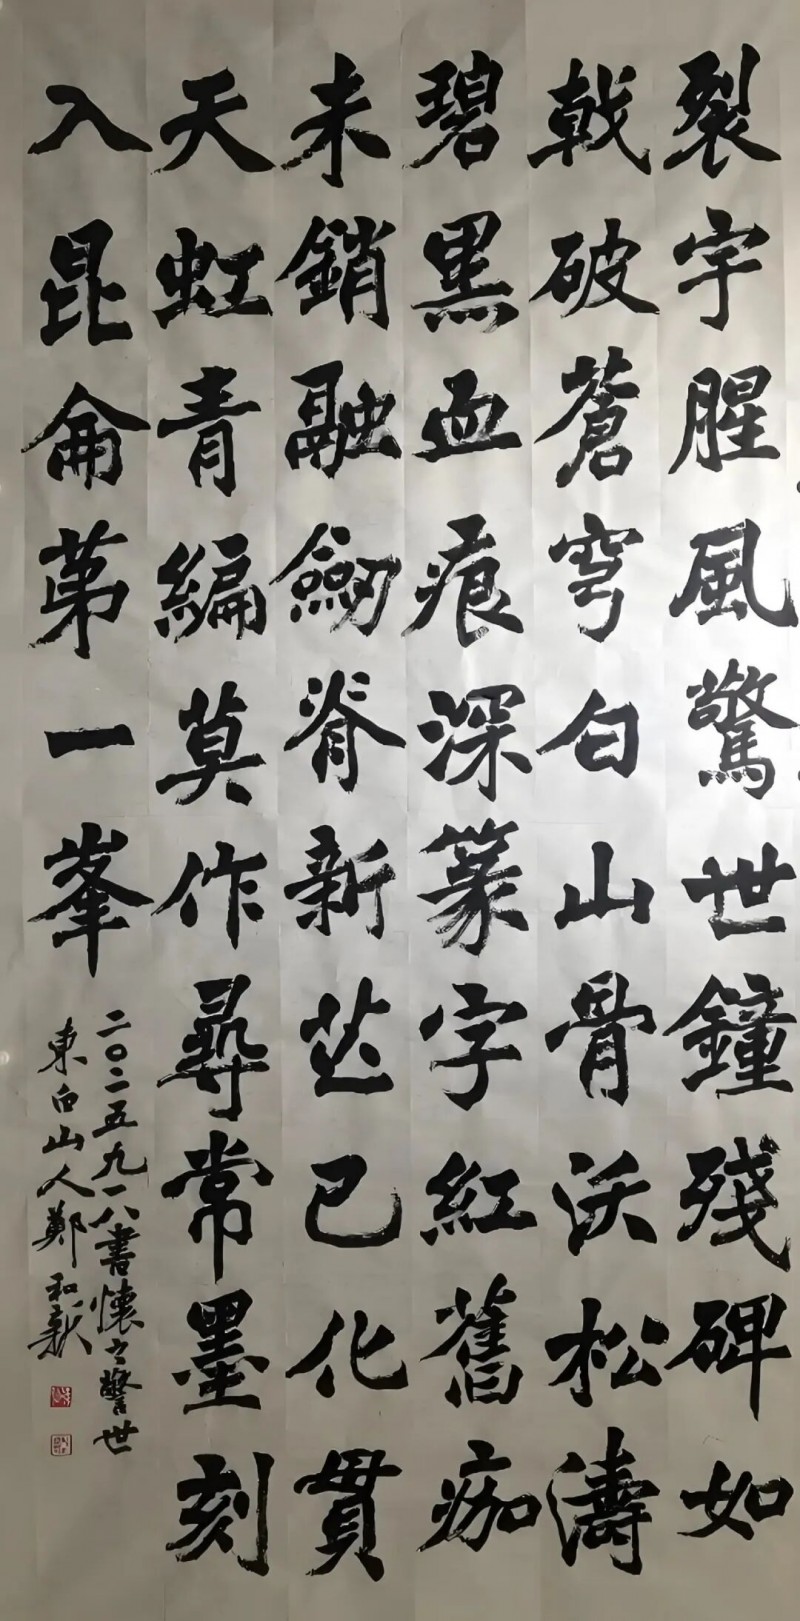 裂宇腥風驚世鐘殘碑如
戟破蒼穹白山骨沃松濤
碧黑血痕深篆字紅舊痂
未銷融劒脊新芒已化貫
天虹青編莫作尋常墨刻
入昆侖苐一峯
二〇二五九一八書懷之警世
東白山人鄭和新